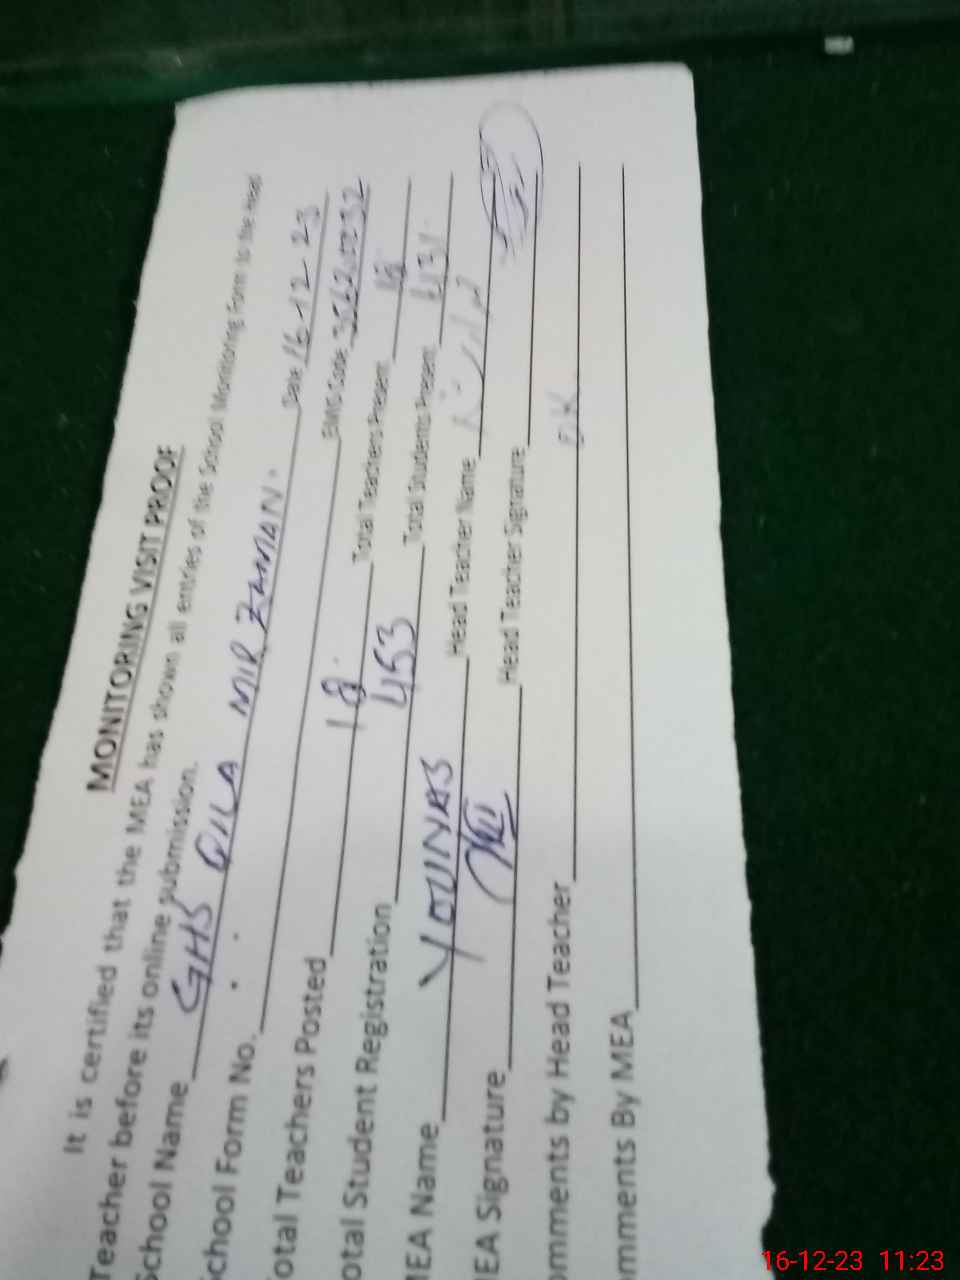 MONITORING VISIT PROOF
It is certified that the MEA has shown all entries of the School Monitoring Form to the Head
Teacher before its online submission.
School Name GHS QILA MIR ZAMAN. Date 16-12-23
chool Form No. EMIS Code
otal Teachers Posted 18. Total Teachers Present 18
otal Student Registration 453 Total Students Present 431
MEA Name YOUNAS Head Teacher Name
IEA Signature Head Teacher Signature
omments by Head Teacher OK
omments By MEA
16-12-23 11:23